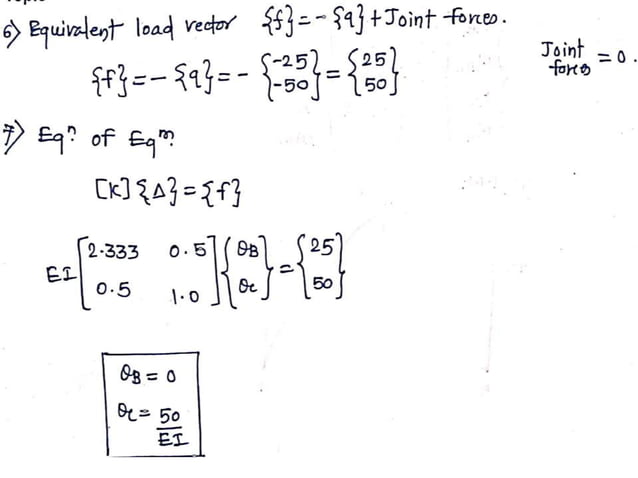 6) Equivalent load vector {f} = - {q} + Joint forces.
{f} = - {q} = - {-25 -50} = {25 50}
Joint forces = 0.
7) Eqn of Eqm:
[K] {Δ} = {f}
EI [2.333 0.5
0.5 1.0] {θB θc} = {25 50}
θB = 0
θc = 50/EI